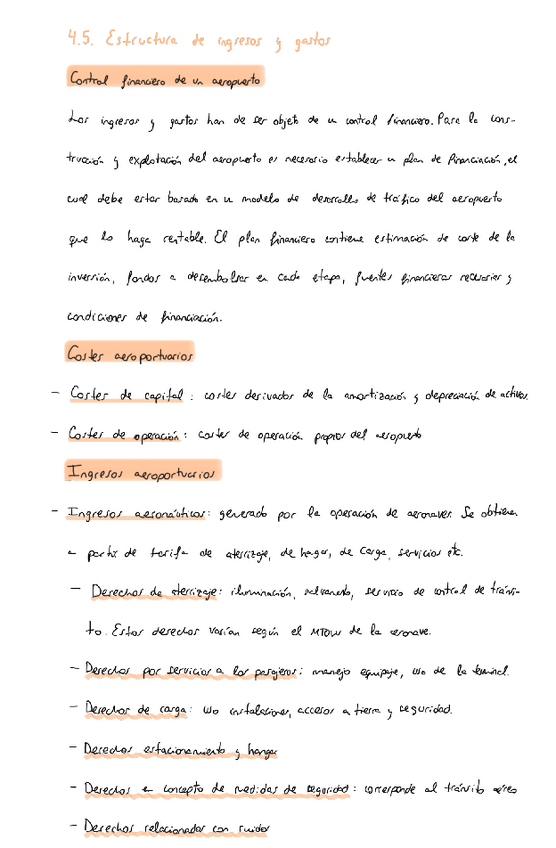 4.5. Estructura de ingresos y gastos
Control financiero de un aeropuerto
Los ingresos y gastos han de ser objeto de un control financiero. Para la cons-
trucción y explotación del aeropuerto es necesario establecer un plan de financiación, el
cual debe estar basado en un modelo de desarrollo de tráfico del aeropuerto
que lo haga rentable. El plan financiero contiene estimación de coste de la
inversión, fondos a desembolsar en cada etapa, fuentes financieras necesarias y
condiciones de financiación.
Costes aeroportuarios
- Costes de capital: costes derivados de la amortización y depreciación de activos.
- Costes de operación: costes de operación propios del aeropuerto
Ingresos aeroportuarios
- Ingresos aeronáuticos: generado por la operación de aeronaves. Se obtienen
a partir de tarifa de aterrizaje, de hangar, de carga, servicios etc.
- Derechos de aterrizaje: iluminación, salvamento, servicio de control de tránsi-
to. Estos derechos varían según el MTOW de la aeronave.
- Derechos por servicios a los pasajeros: manejo equipaje, uso de la terminal.
- Derechos de carga: uso instalaciones, accesos a tierra y seguridad.
- Derechos estacionamiento y hangar
- Derechos en concepto de medidas de seguridad: corresponde al tránsito aéreo
- Derechos relacionados con ruidos